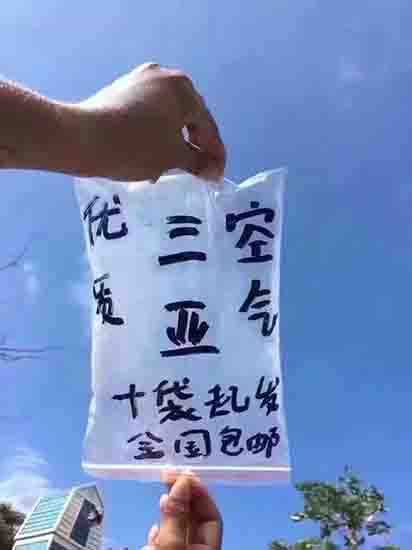 优质
三亚
空气
十袋起发
全国包邮